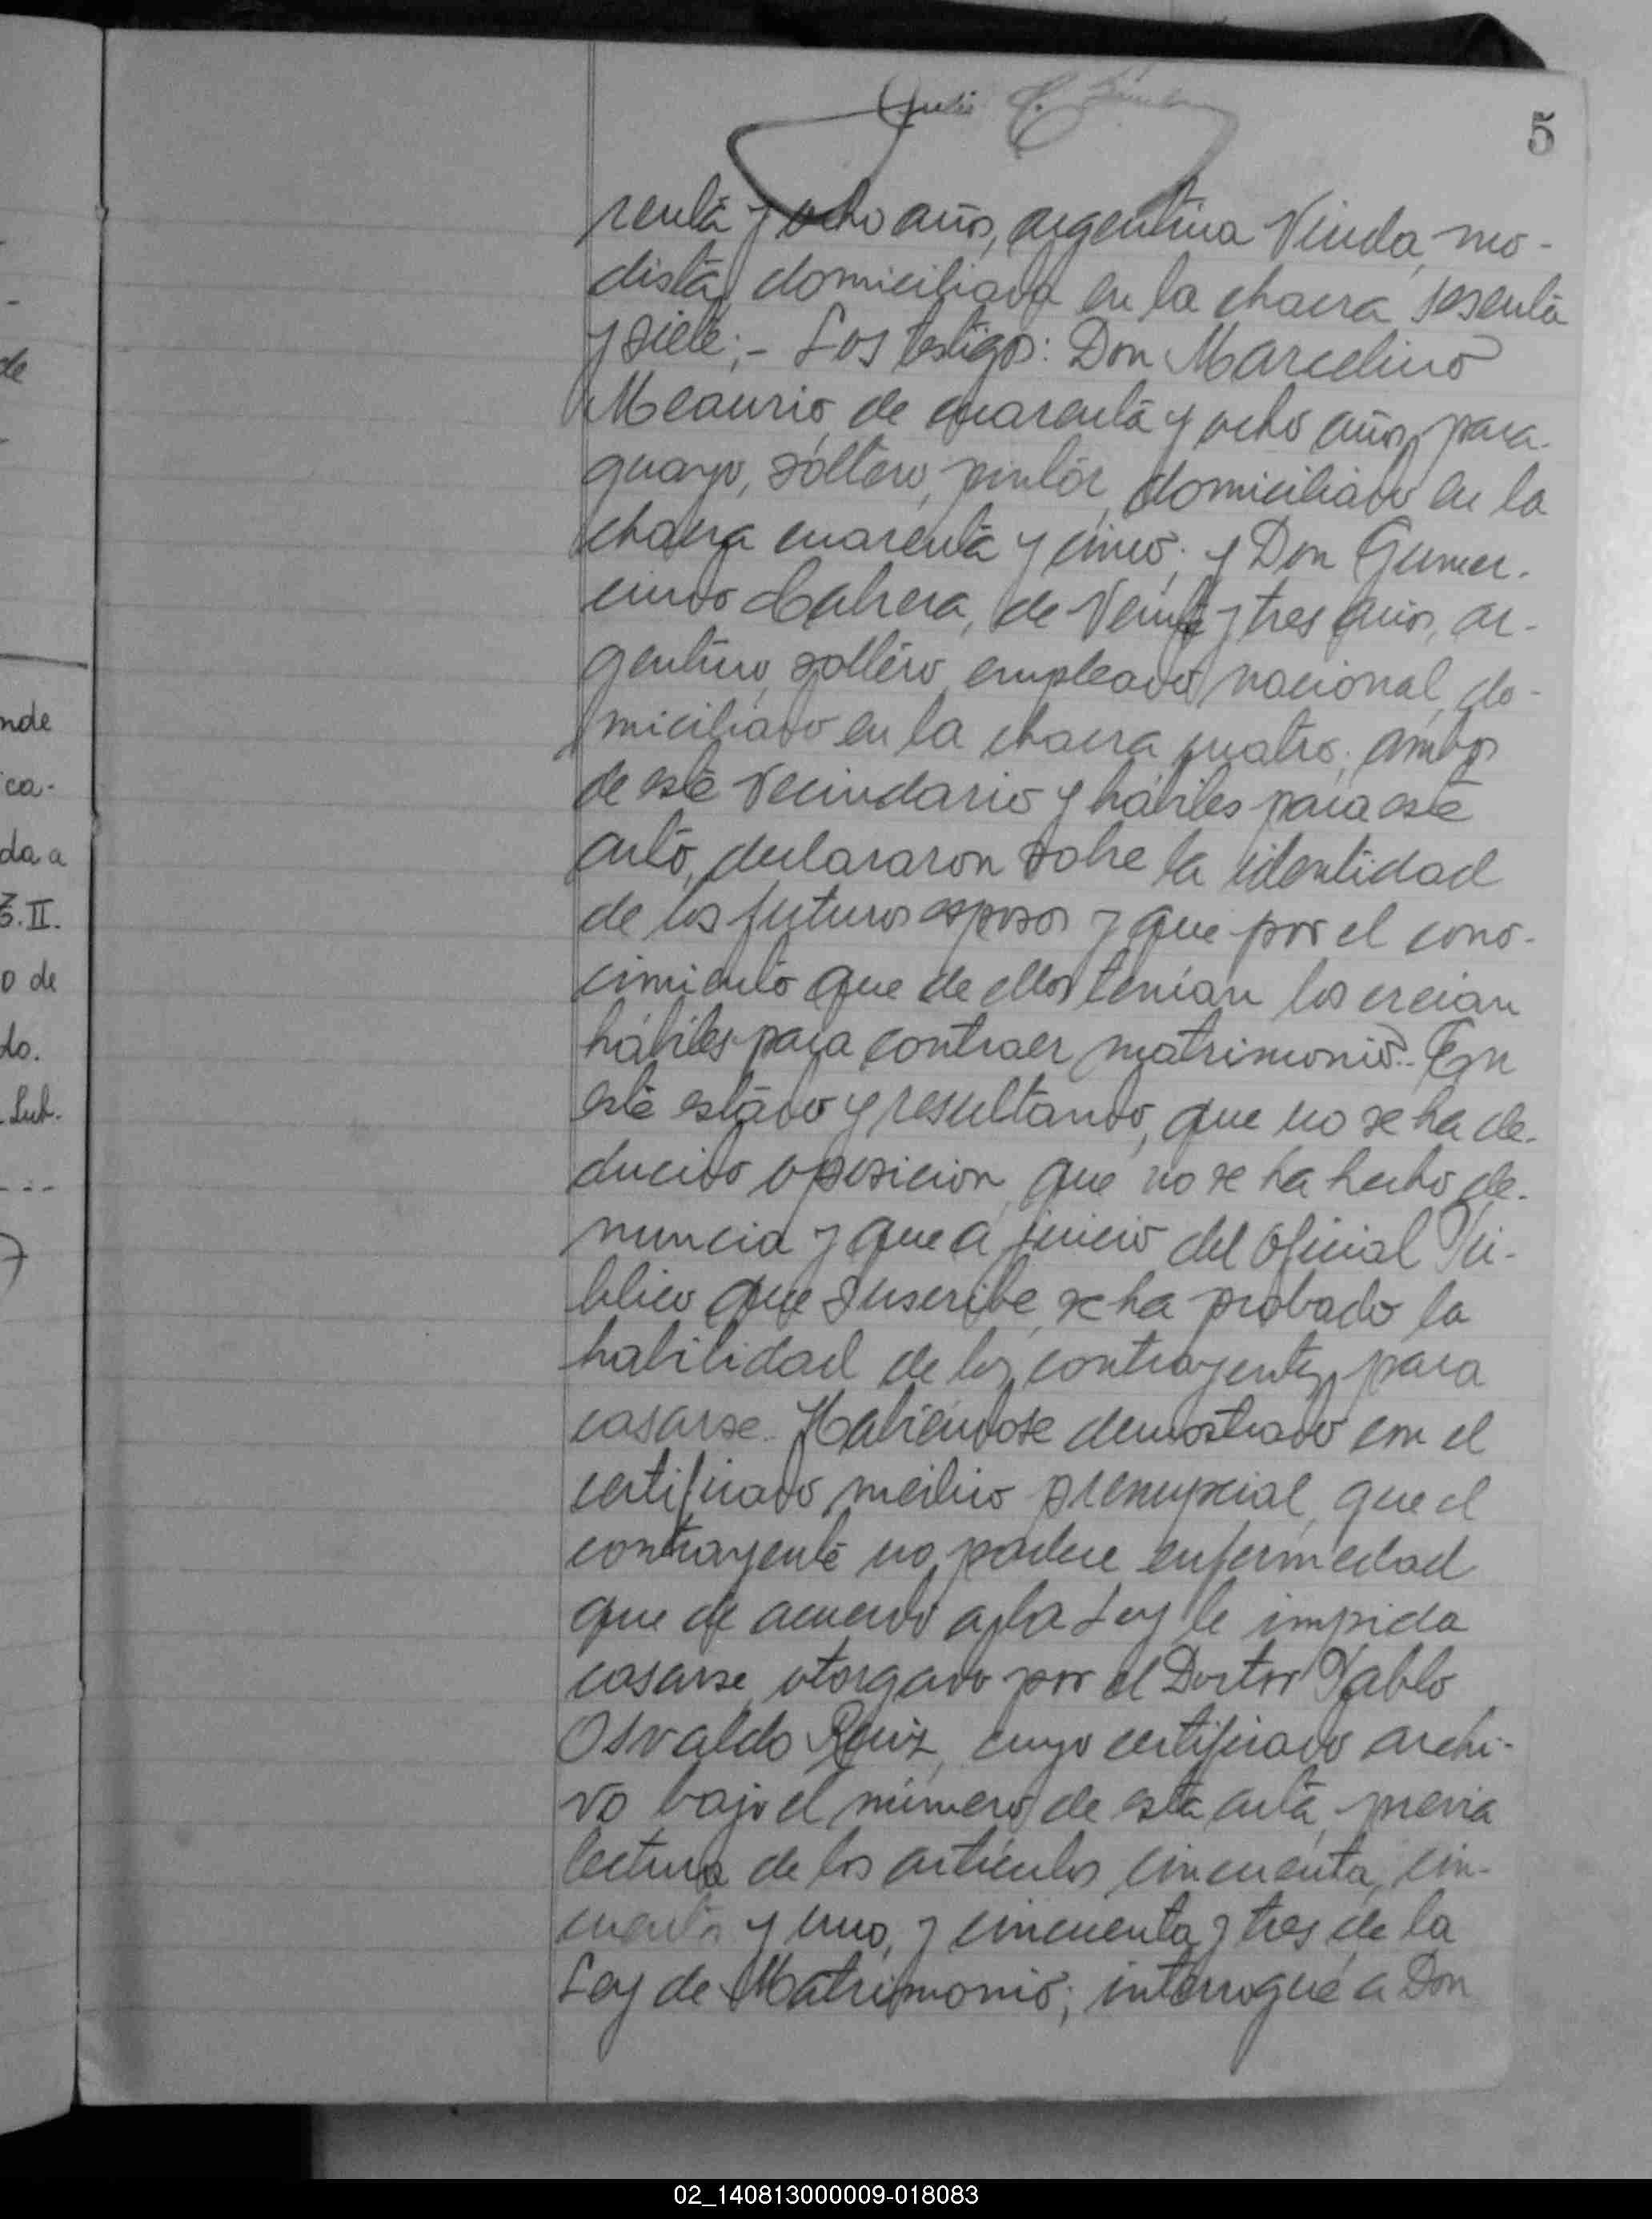 5
Julio C.
renta y ocho años, argentina Viuda, mo-
dista, domiciliada en la chacra sesenta
y siete;- Los testigos: Don Marcelino
Meaurio, de cuarenta y ocho años, para-
guayo, soltero, pintor, domiciliado en la
chacra cuarenta y cinco; y Don Gumer-
cindo Cabrera, de Veinte y tres años, ar-
gentino, soltero, empleado nacional, do-
miciliado en la chacra cuatro; ambos
de este Vecindario y hábiles para este
acto, declararon sobre la identidad
de los futuros esposos y que por el cono-
cimiento que de ellos tenían los creían
hábiles para contraer matrimonio.- En
este estado y resultando, que no se ha de-
ducido oposicion, que no se ha hecho de-
nuncia y que a juicio del Oficial Pú-
blico que suscribe, se ha probado la
habilidad de los contrayentes para
casarse.- Habiéndose demostrado con el
certificado médico prenupcial, que el
contrayente no padece enfermedad
que de acuerdo a la Ley le impida
casarse, otorgado por el Doctor Pablo
Osvaldo Ruiz, cuyo certificado archi-
vo bajo el número de esta acta, previa
lectura de los artículos cincuenta, cin-
cuenta y uno, y cincuenta y tres de la
Ley de Matrimonio; interrogué a Don
de
nde
ca-
da a
3.II.
o de
do.
Sub-
02_140813000009-018083